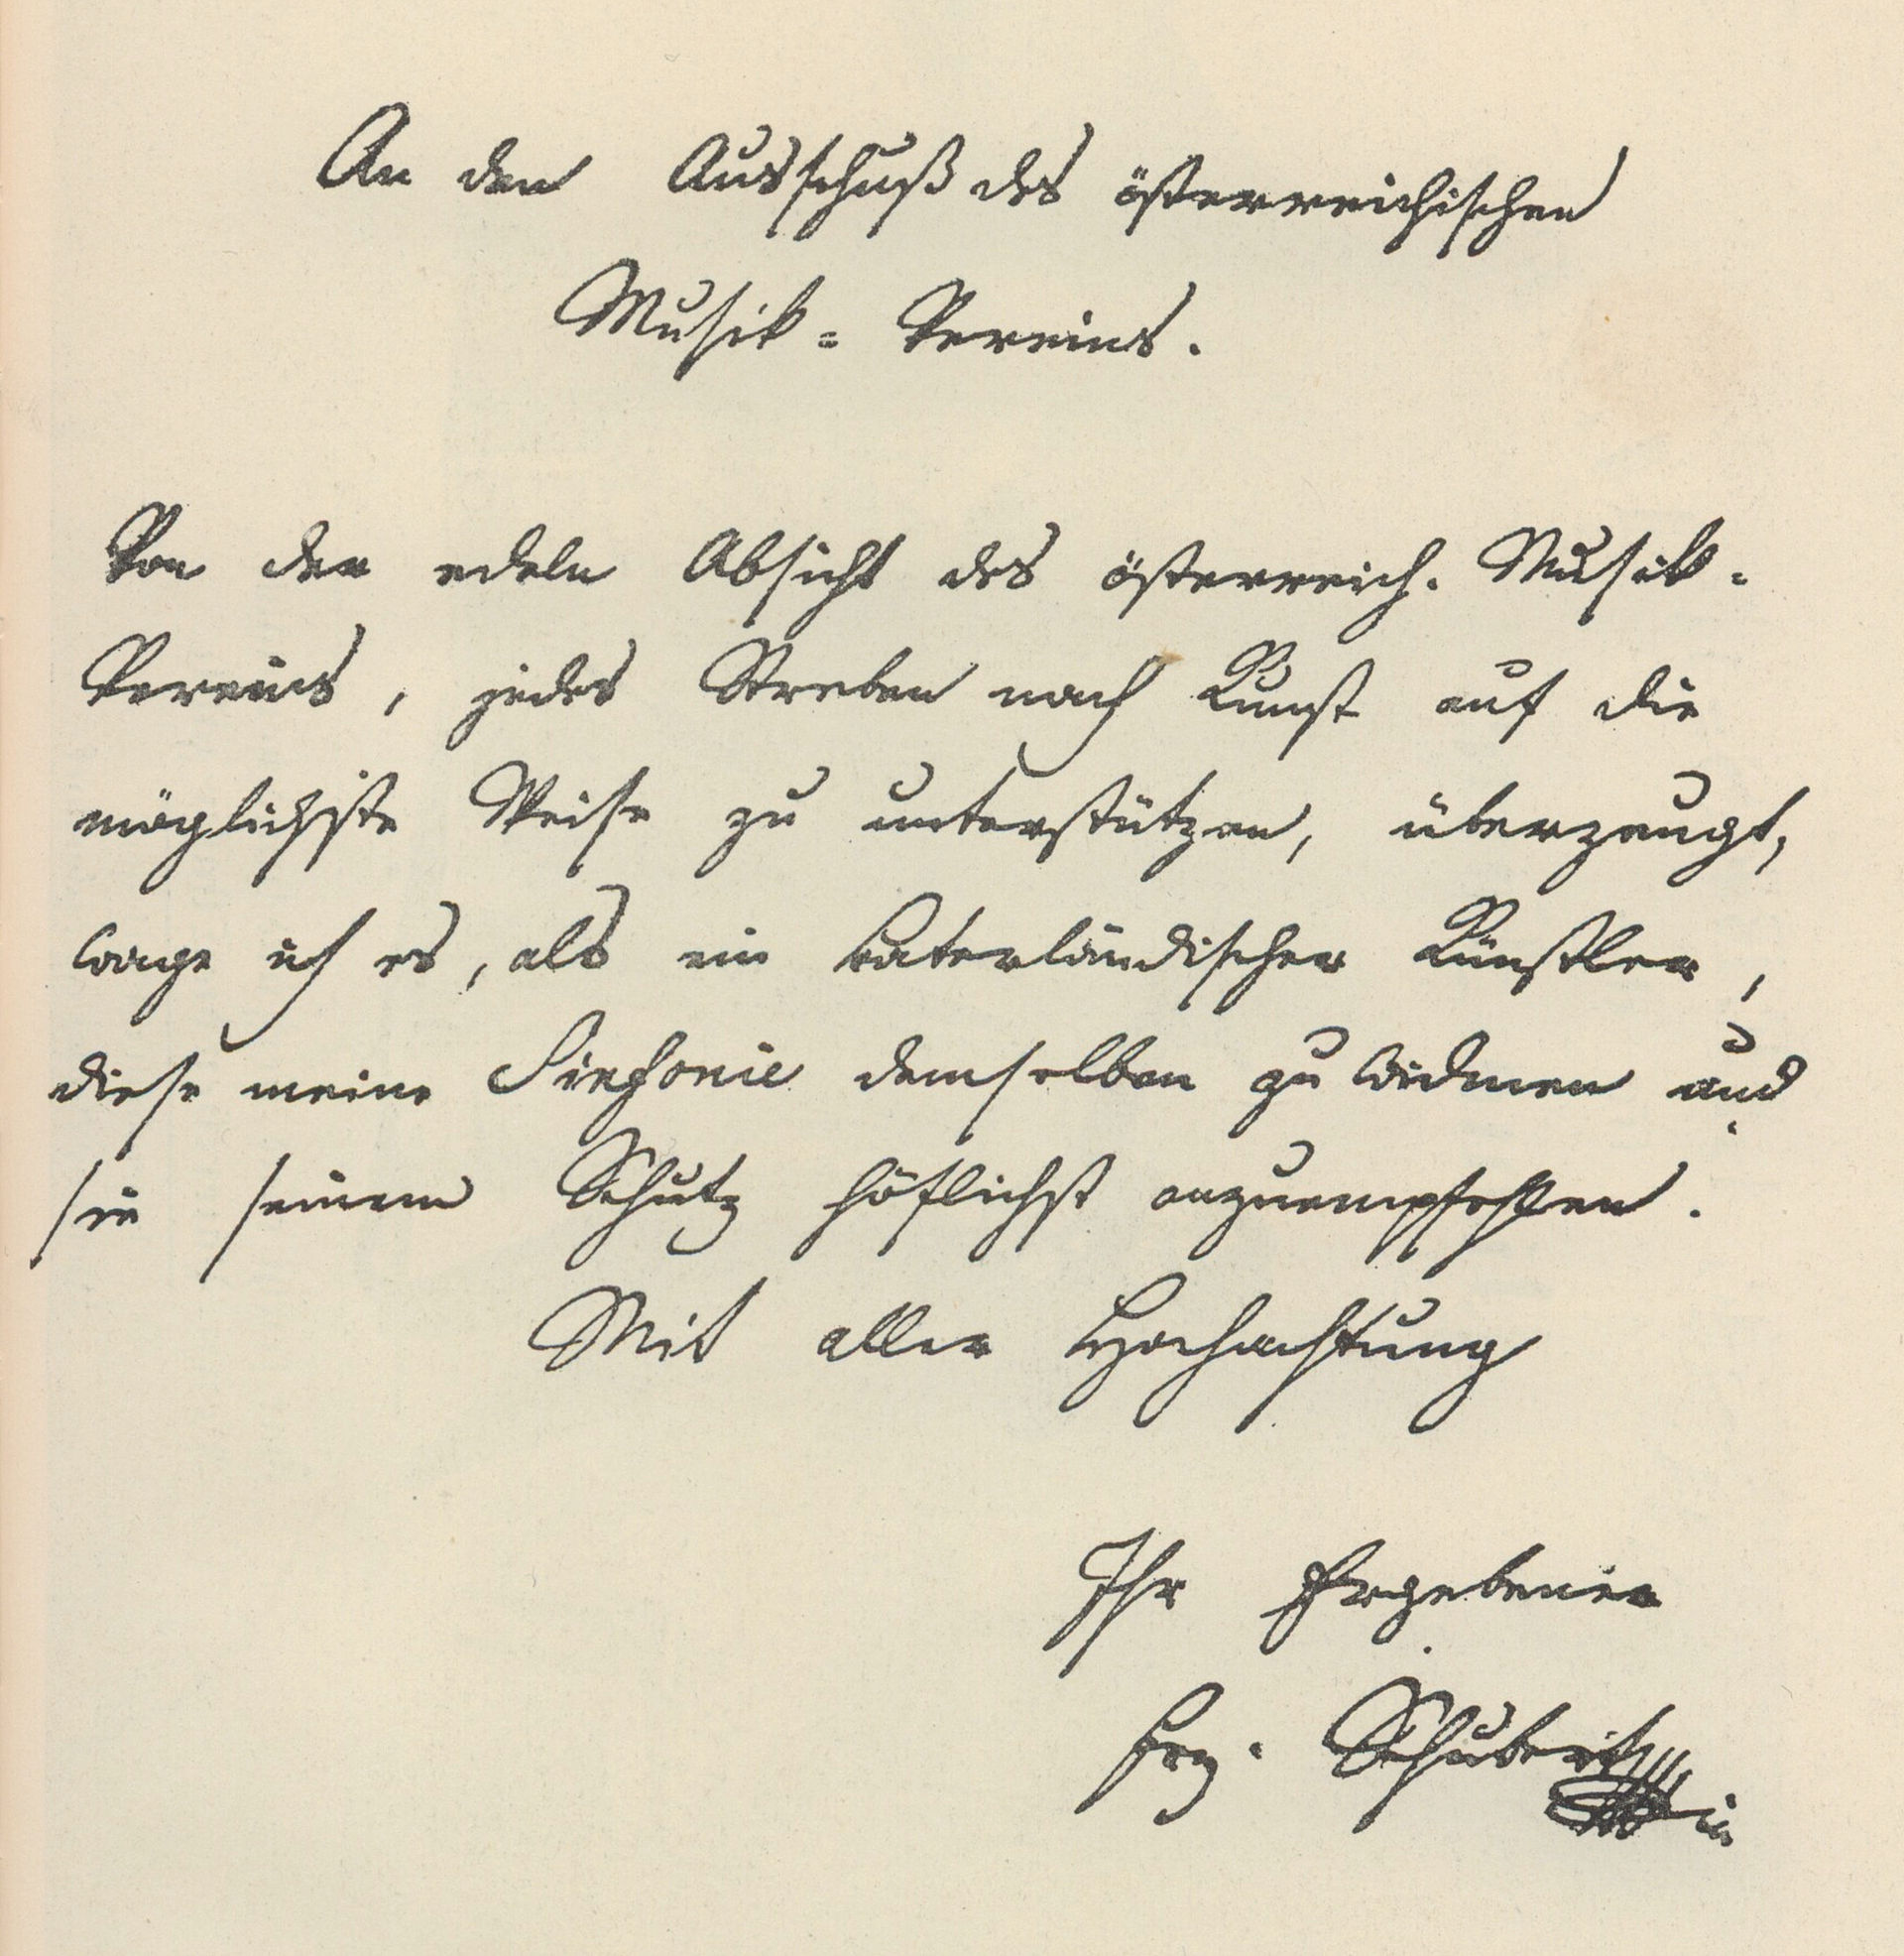 An den Ausschuß des österreichischen
Musik = Vereins.
Von der edeln Absicht des österreich. Musik =
Vereins, jedes Streben nach Kunst auf die
möglichste Weise zu unterstützen, überzeugt,
wage ich es, als ein vaterländischer Künstler,
diese meine Sinfonie demselben zu widmen und
sie seinem Schutz höflichst anzuempfehlen.
Mit aller Hochachtung
Ihr Ergebener
Frz. Schubert